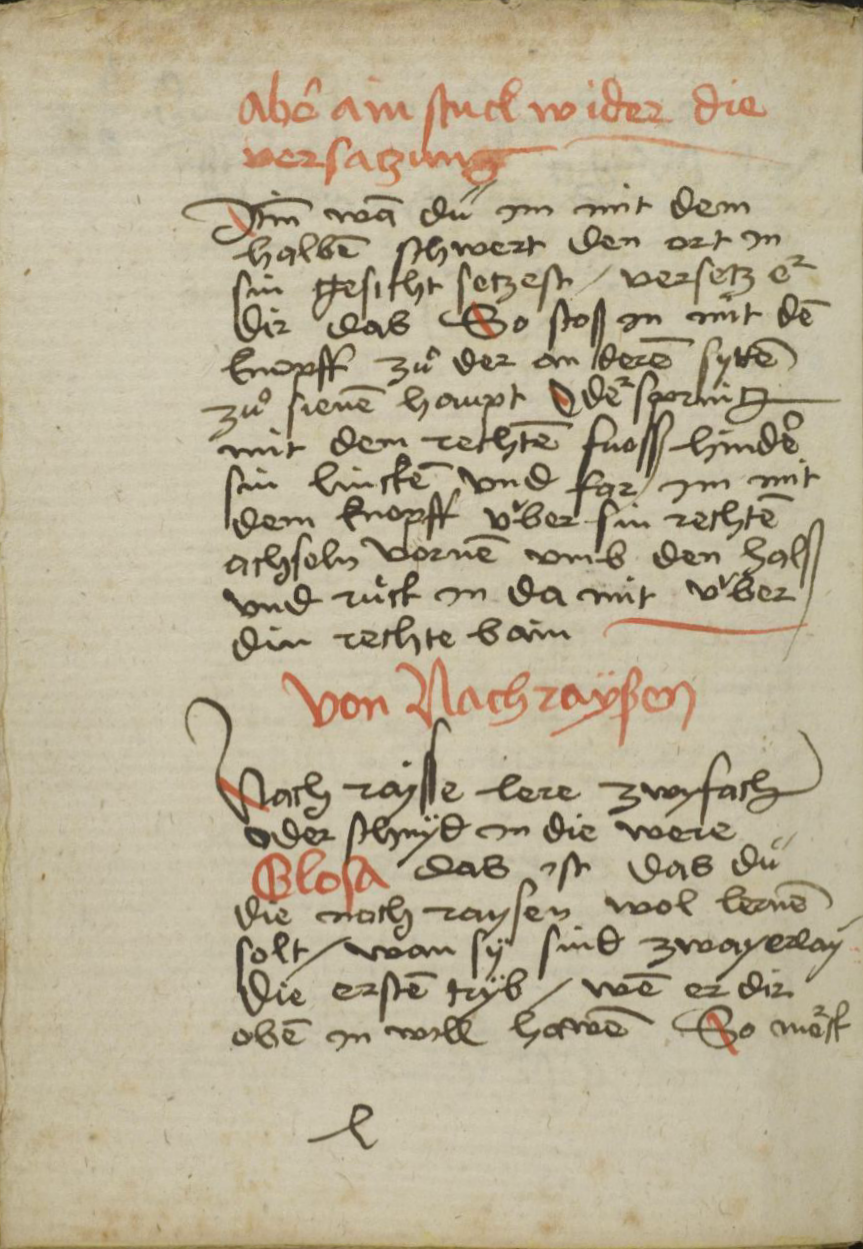 Abe͛ ain stuck wider die
versaczung
Itm̄ wā dü im mit dem
halbē schwert den ort in
sin gesicht setzest / versetz er
dir das So stoſß in mit dē
knopff zuͦ der an derē sÿtē
zuͦ sienē haupt Oder spring
mit dem rechtē fuoſß hinder
sin linckē vnd far im mit
dem knopff vͤber sin rechtē
achseln vornē vmb den halſß
vnd ruͤck in da mit vͤber
din rechte bain
Von Nachraÿsen
Nach raÿsse lere zwyfach
oder schnÿd in die were
Glosa das ist das dü
die nach raysen wol lernē
solt / wan sÿ sind zwayerlaÿ
die erstē trÿb / wē er dir
obē in will hawē So merck
l